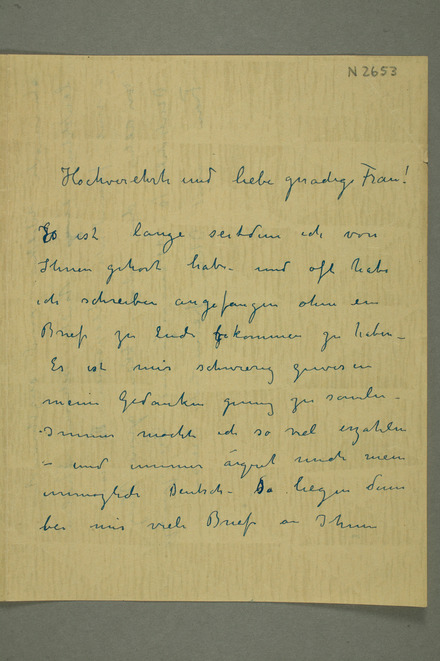 N 2653
Hochverehrte und liebe gnädige Frau!
Es ist lange seitdem ich von
Ihnen gehört habe – und oft habe
ich schreiben angefangen ohne ein
Brief zu Ende bekommen zu haben –
Es ist mir schwierig gewesen
meine Gedanken genug zu sammeln –
Immer möchte ich so viel erzählen
– und immer ärgert mich mein
unmöglich Deutsch – Da liegen dann
bei mir viele Briefe an Ihnen